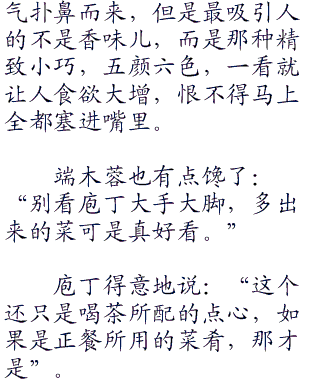 气扑鼻而来，但是最吸引人
的不是香味儿，而是那种精
致小巧，五颜六色，一看就
让人食欲大增，恨不得马上
全都塞进嘴里。
端木蓉也有点馋了：
“别看庖丁大手大脚，多出
来的菜可是真好看。”
庖丁得意地说：“这个
还只是喝茶所配的点心，如
果是正餐所用的菜肴，那才
是”。